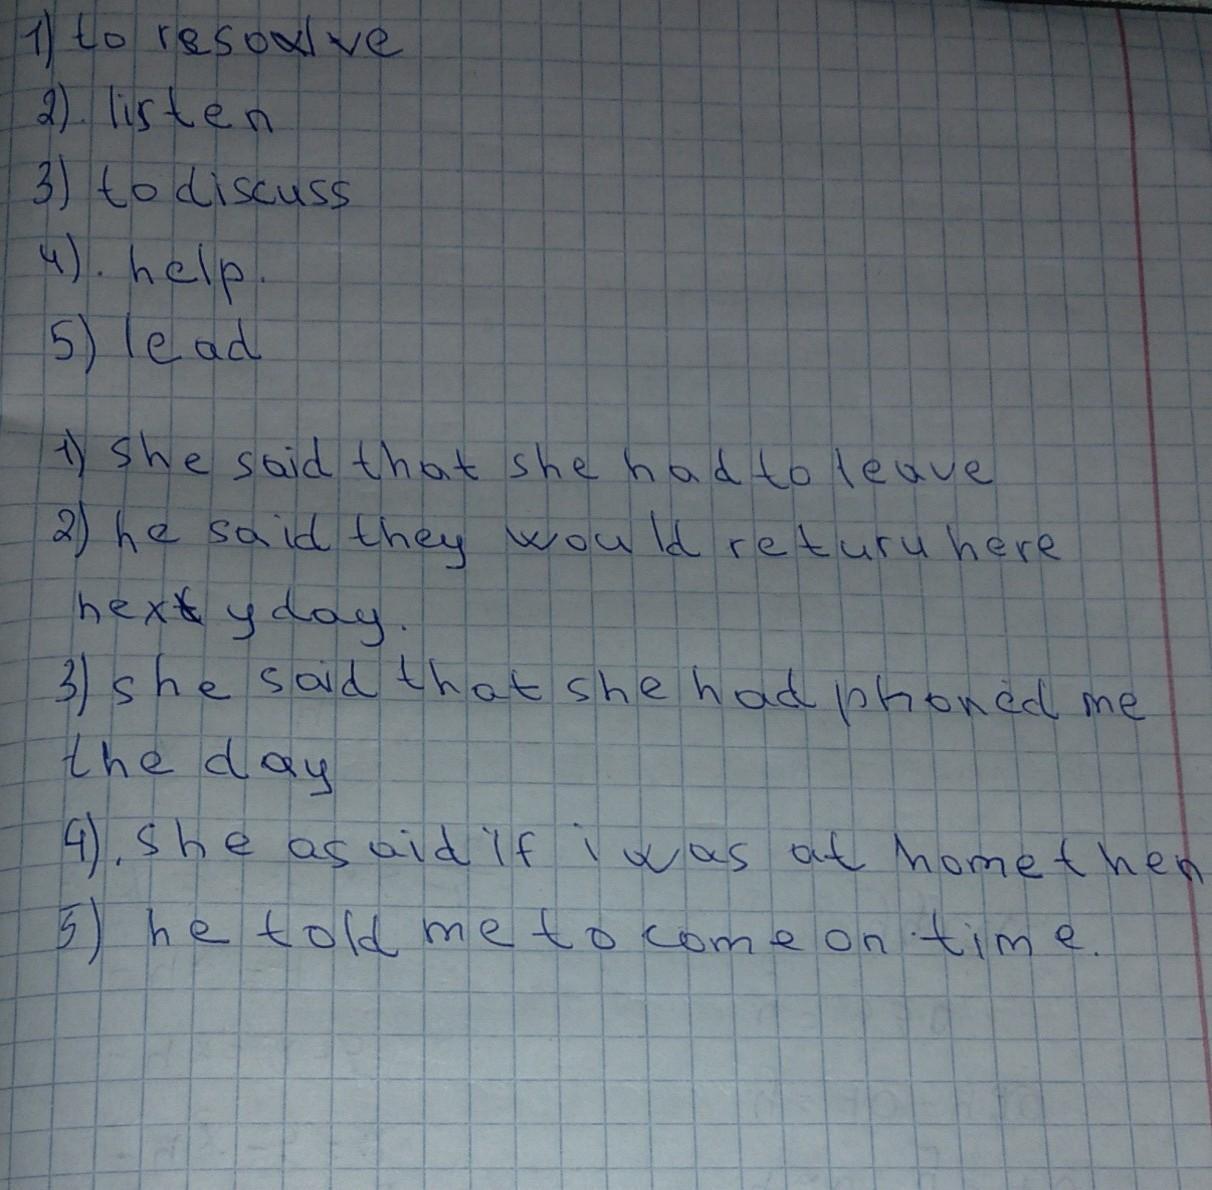 1) to resolve
2). listen
3) to discuss
4). help.
5) lead
1) she said that she had to leave
2) he said they would return here
next y day.
3) she said that she had phoned me
the day
4). she asaid if i was at home then
5) he told me to come on time.